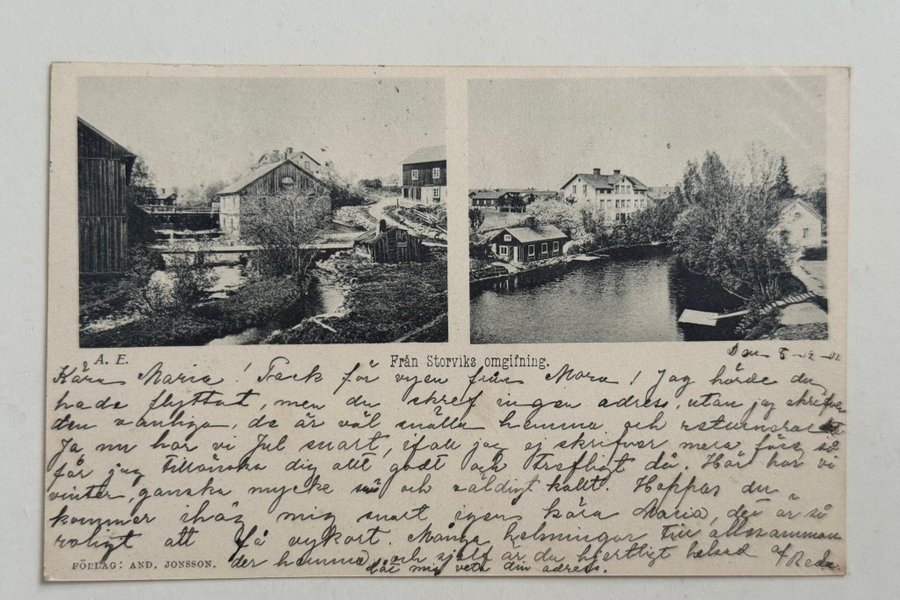 A. E.
Från Storviks omgifning.
Den 8-12-02
Kära Maria! Tack för vyen från Mora! Jag hörde du
hade flyttat, men du skref ingen adress, utan jag skrifver
den vanliga, de är väl snälla hemma och returnera det
Ja nu har vi Jul snart, ifall jag ej skrifver mera förr så
får jag tillönska dig allt godt och trefligt då. Här har vi
vinter, ganska mycke snö och väldigt kallt. Hoppas du
kommer ihåg mig snart igen kära Maria, det är så
roligt att få vykort. Många helsningar till allesamman
der hemma, och sjelf är du hjertligt helsad af
låt mig veta din adress.
FÖRLAG: AND. JONSSON.